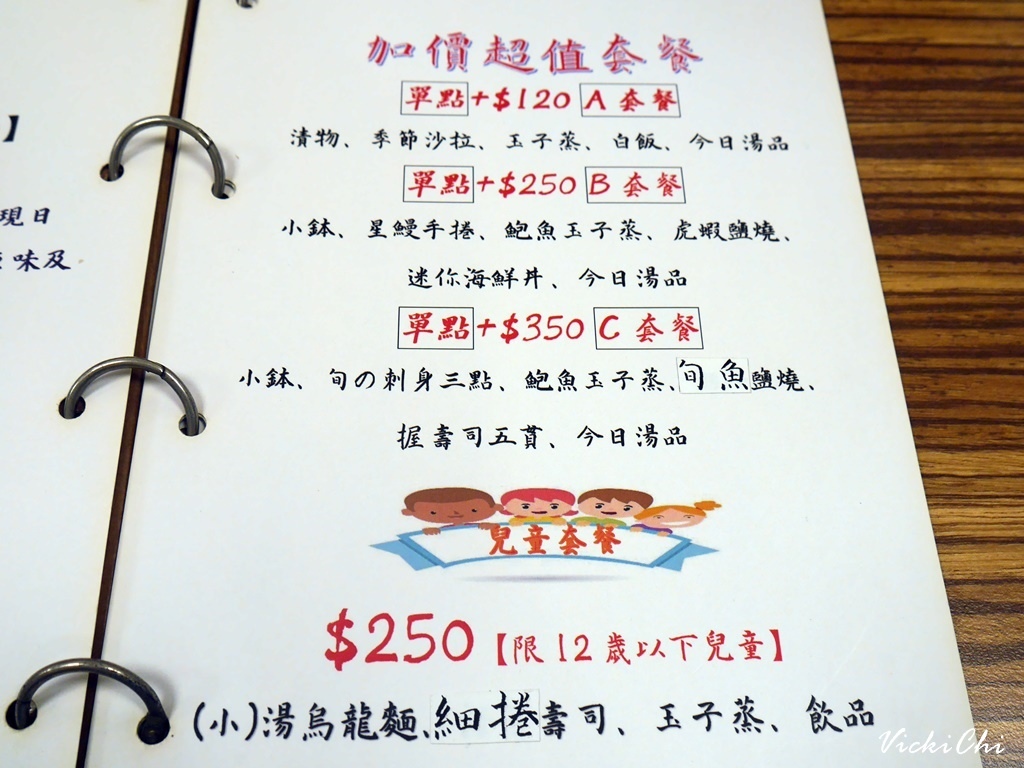 】
現日
味及
加價超值套餐
單點+$120 A 套餐
漬物、季節沙拉、玉子蒸、白飯、今日湯品
單點+$250 B 套餐
小鉢、星鰻手捲、鮑魚玉子蒸、虎蝦鹽燒、
迷你海鮮丼、今日湯品
單點+$350 C 套餐
小鉢、旬の刺身三點、鮑魚玉子蒸、旬魚鹽燒、
握壽司五貫、今日湯品
兒童套餐
$250【限12歲以下兒童】
(小)湯烏龍麵、細捲壽司、玉子蒸、飲品
VickiChi